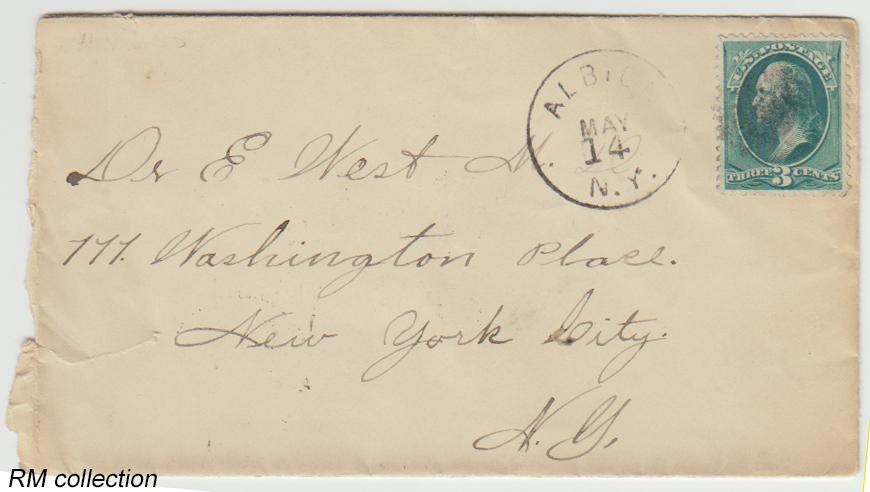 ALBION
MAY
14
N.Y.
U.S. POSTAGE
THREE 3 CENTS
Dr E West M.
177. Washington Place.
New York City.
N.Y.
RM collection